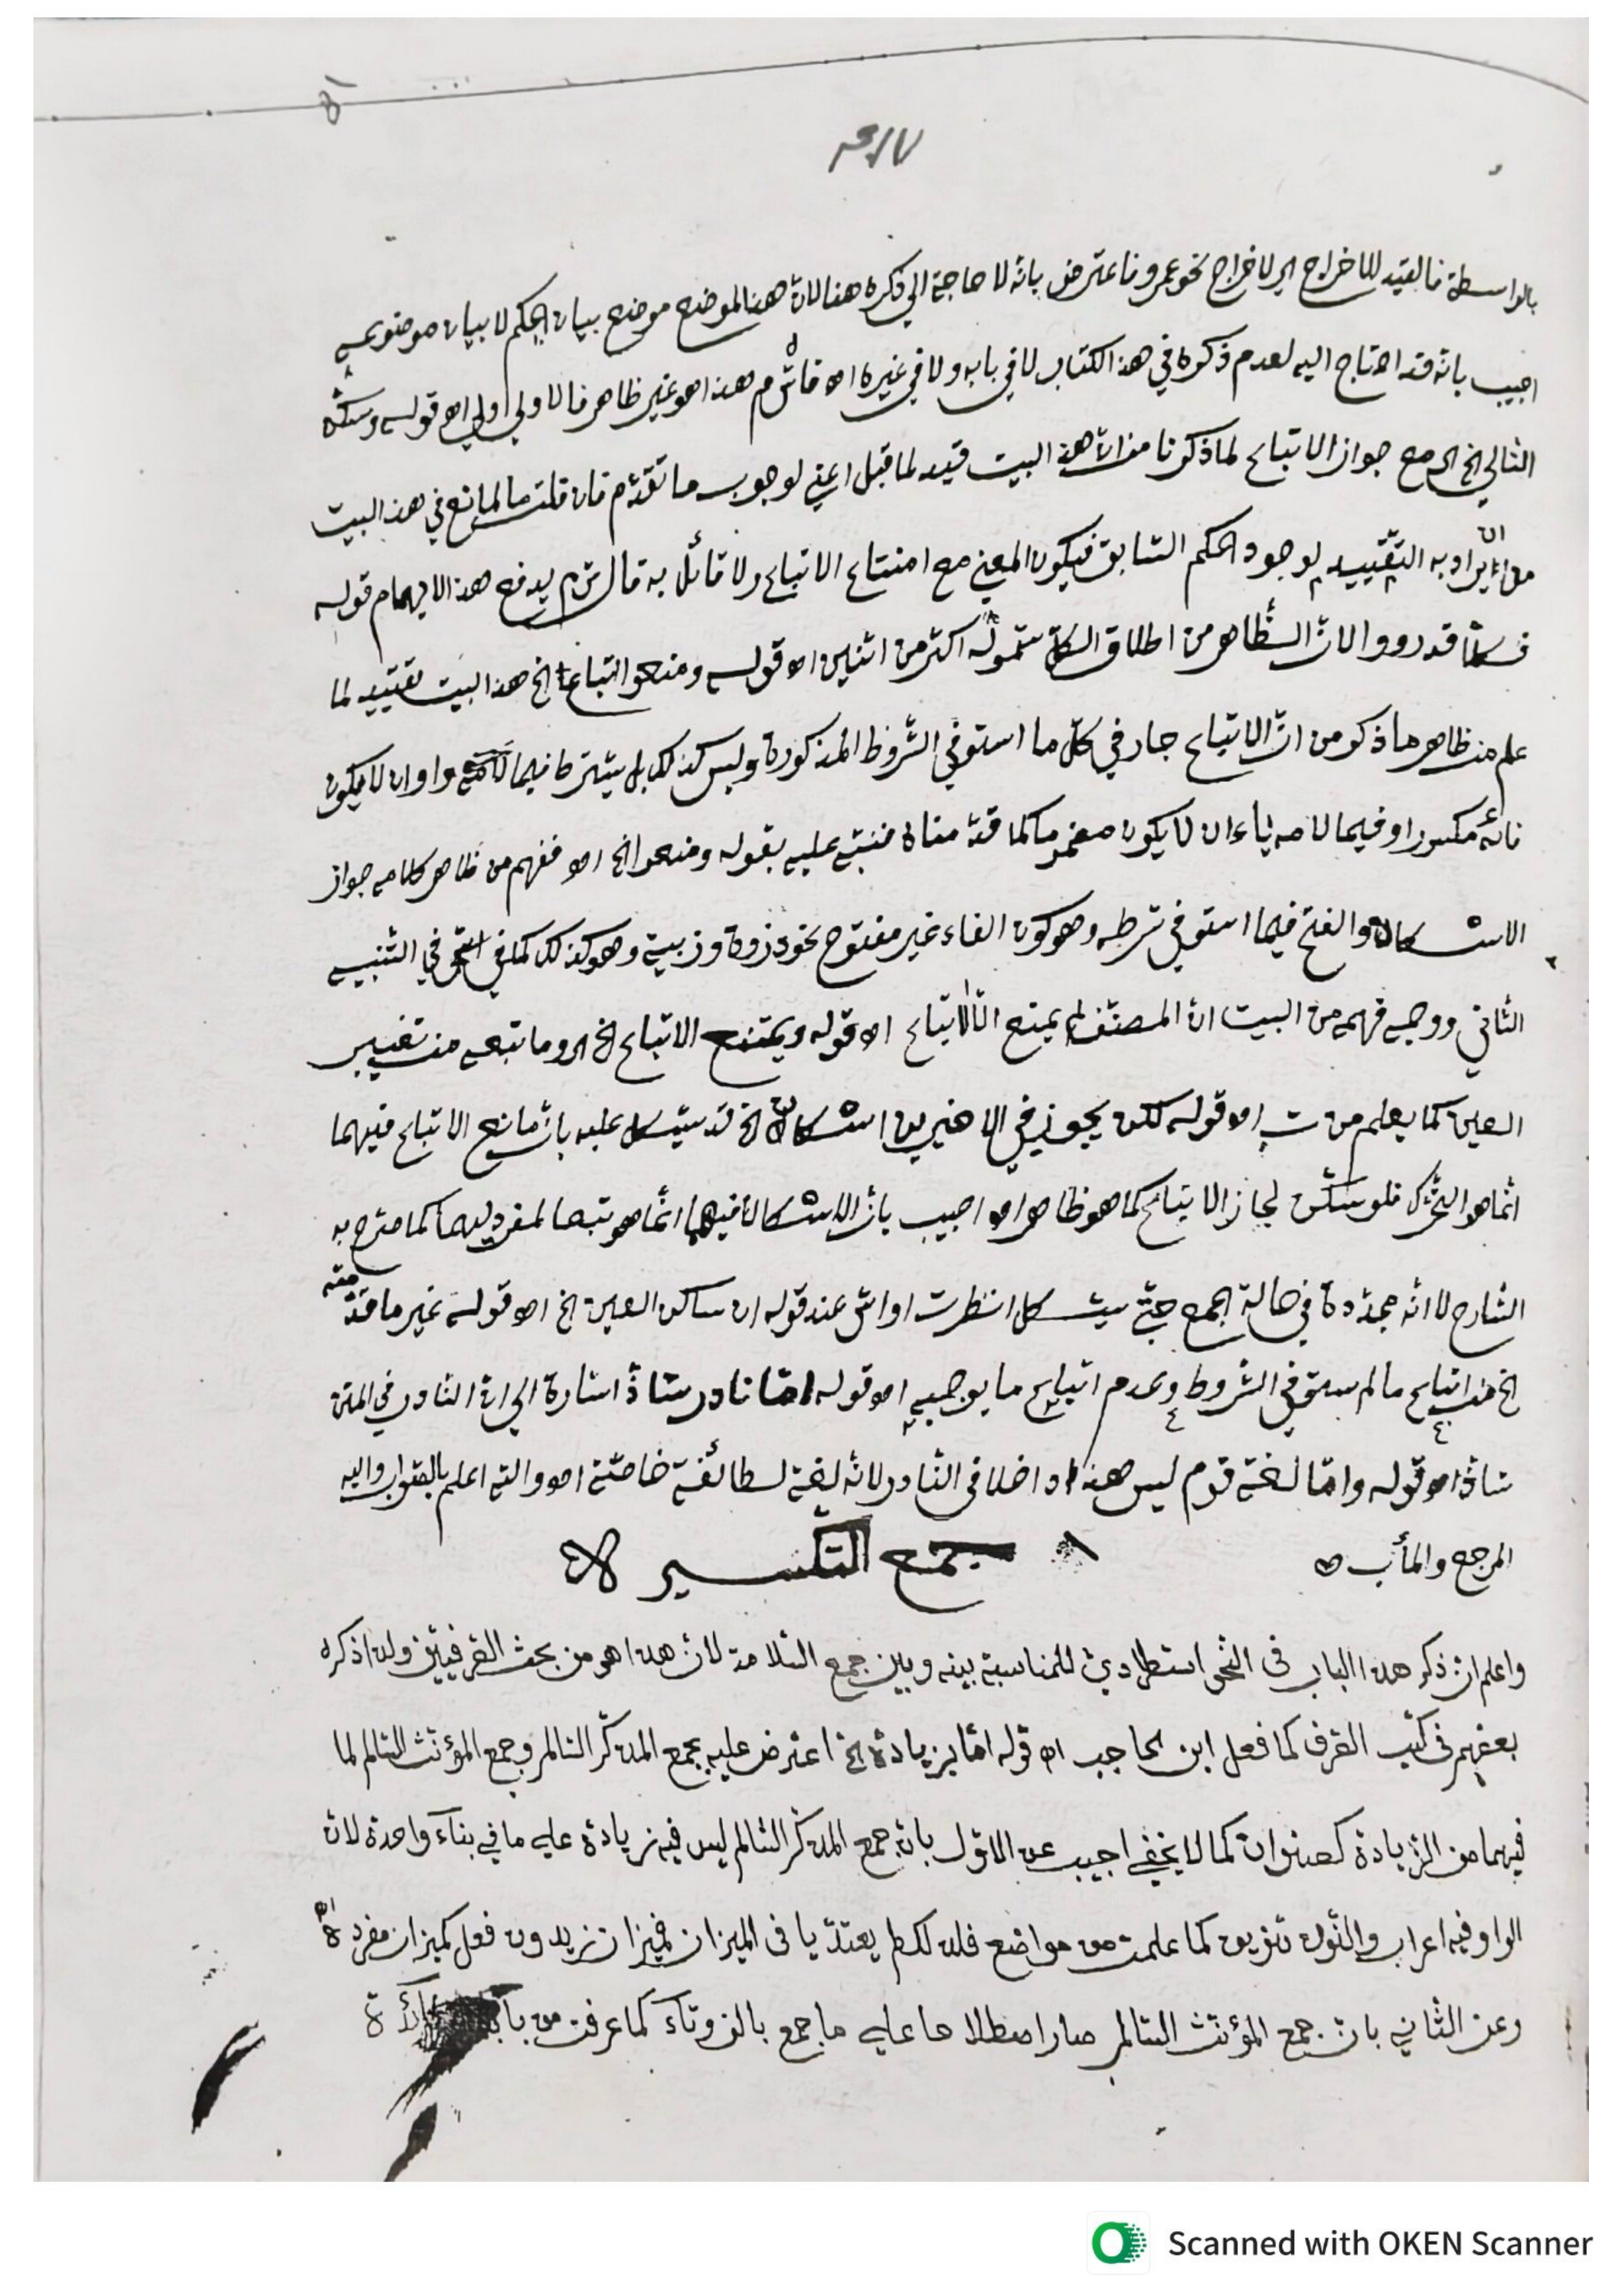 بالواسطة فالقيد للاخراج اي لاخراج نحو عمرو فاعترض بانه لا حاجة الي ذكره هنا لان هذا الموضع موضع بيان الحكم لا بيان موضوعه
اجيب بانه قد احتاج اليه لعدم ذكره في هذا الكتاب لا في بابه ولا في غيره اه هذا اه وغير ظاهر فالاولي اولي اه قوله وسكن
التالي الخ اي مع جواز الاتباع لما ذكرنا من ان هذا البيت قيد لما قبل اعني لوجوب ما تقدم فان قلت ما المانع في هذا البيت
من ان يراد به التقييد لوجود الحكم السابق فيكون المعني مع امتناع الاتباع ولا قائل به قال ش م يدفع هذا الايهام قوله
فكلا قد رووا لان الظاهر من اطلاق الكل شموله اكثر من اثنين اه قوله ومنعوا اتباع الخ هذا البيت تقييد لما
علم من ظاهر ما ذكر من ان الاتباع جار في كل ما استوفي الشروط المذكورة وليس كذلك بل يشترط فيما لامه واو ان لا يكون
فائه مكسورا وفيما لامه ياء ان لا يكون مضموما كما قدمناه فنبه عليه بقوله ومنعوا الخ اه ففهم من ظاهر كلامه جواز
الاسكان والفتح فيما استوفي شرطه وهو كون الفاء غير مفتوح نحو ذروة وزبية وهو كذلك كما في التنبيه
الثاني ووجه فهمه من البيت ان المصنف لم يمنع الا الاتباع اه قوله ويمتنع الاتباع الخ اي وما تبعه من تغيير
العين كما يعلم من اه قوله لكن يجوز في الاخيرين اسكان الخ قد يستشكل عليه بان مانع الاتباع فيهما
انما هو التحرك فلو سكن لجاز الاتباع كما هو ظاهر اه اجيب بان الاسكان فيهما انما هو تبعا لمفرديهما كما صرح به
الشارح لا انه مجددة في حالة الجمع حتي يستشكل انظرت اواش عند قوله ان ساكن العين الخ اه قوله غير ما قدمته
الخ من اتباع ما لم يستوفي الشروط وعدم اتباع ما يوجبه اه قوله اما نادر شاذ اشارة الي ان النادر في المتن
شاذ اه قوله واما لغة قوم ليس هذا داخلا في النادر لانه لغة لطائفة خاصة اه والله اعلم بالصواب واليه
المرجع والمأب
جمع التكسير
واعلم ان ذكر هذا الباب في النحو استطرادي للمناسبة بينه وبين جمع السلامة لان هذا هو من بحث الصرفيين ولذا ذكره
بعضهم في كتب الصرف كما فعل ابن الحاجب اه قوله اما بزيادة الخ اعترض عليه بجمع المذكر السالم وجمع المؤنث السالم لما
فيهما من الزيادة كصنوان كما لا يخفي اجيب عن الاول بان جمع المذكر السالم ليس فيه زيادة علي ما في بناء واحدة لان
الواو فيه اعراب والنون تنوين كما علمت من مواضع فلذلك لم يعتد بها في الميزان فميزان زيدون فعل كميزان مفرده
وعن الثاني بان جمع المؤنث السالم صار اصطلاحا علي ما جمع بالف وتاء كما عرفت من
Scanned with OKEN Scanner